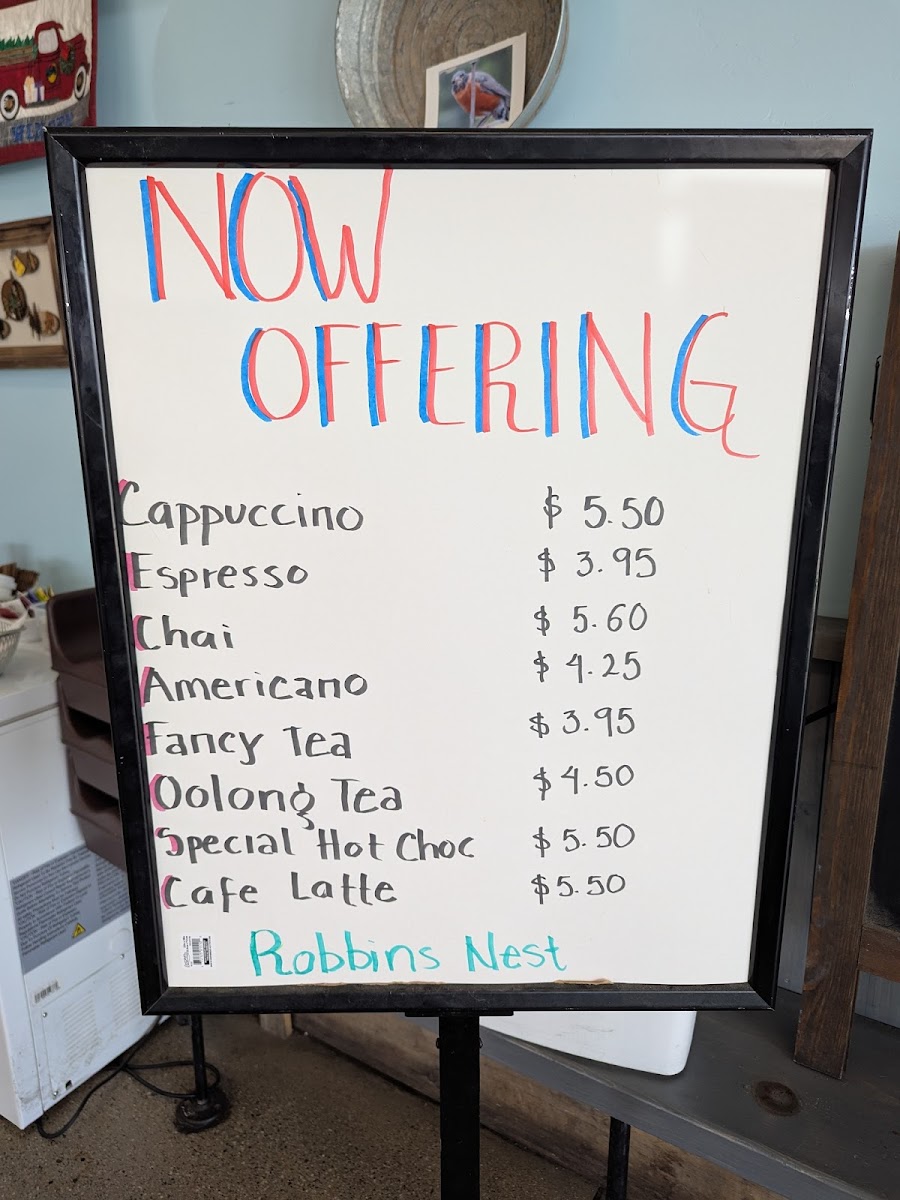 NOW
OFFERING
Cappuccino $ 5.50
Espresso $ 3.95
Chai $ 5.60
Americano $ 4.25
Fancy Tea $ 3.95
Oolong Tea $ 4.50
Special Hot Choc $ 5.50
Cafe Latte $ 5.50
Robbins Nest